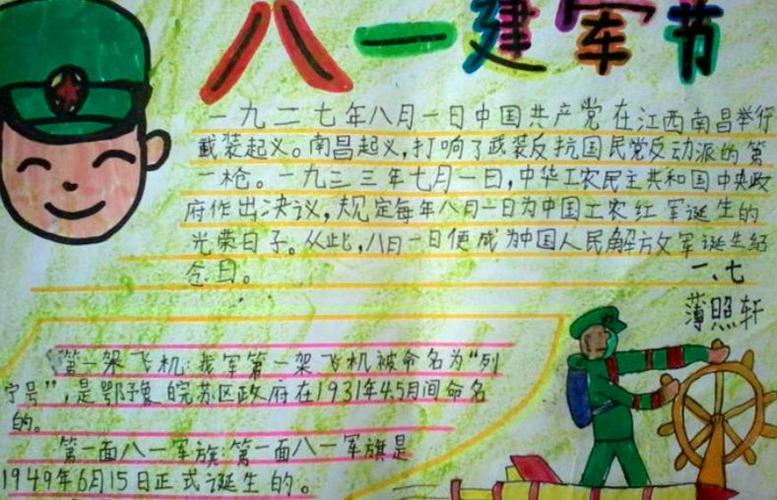 八一建军节
一九二七年八月一日中国共产党在江西南昌举行
武装起义。南昌起义,打响了武装反抗国民党反动派的第
一枪。一九三三年七月一日,中华工农民主共和国中央政
府作出决议,规定每年八月一日为中国工农红军诞生的
光荣日子。从此,八月一日便成为中国人民解放军诞生纪
念日。
一、七
薄照轩
第一架飞机:我军第一架飞机被命名为“列
宁号”,是鄂豫皖苏区政府在1931年4.5月间命名
的。
第一面八一军旗:第一面八一军旗是
1949年6月15日正式诞生的。